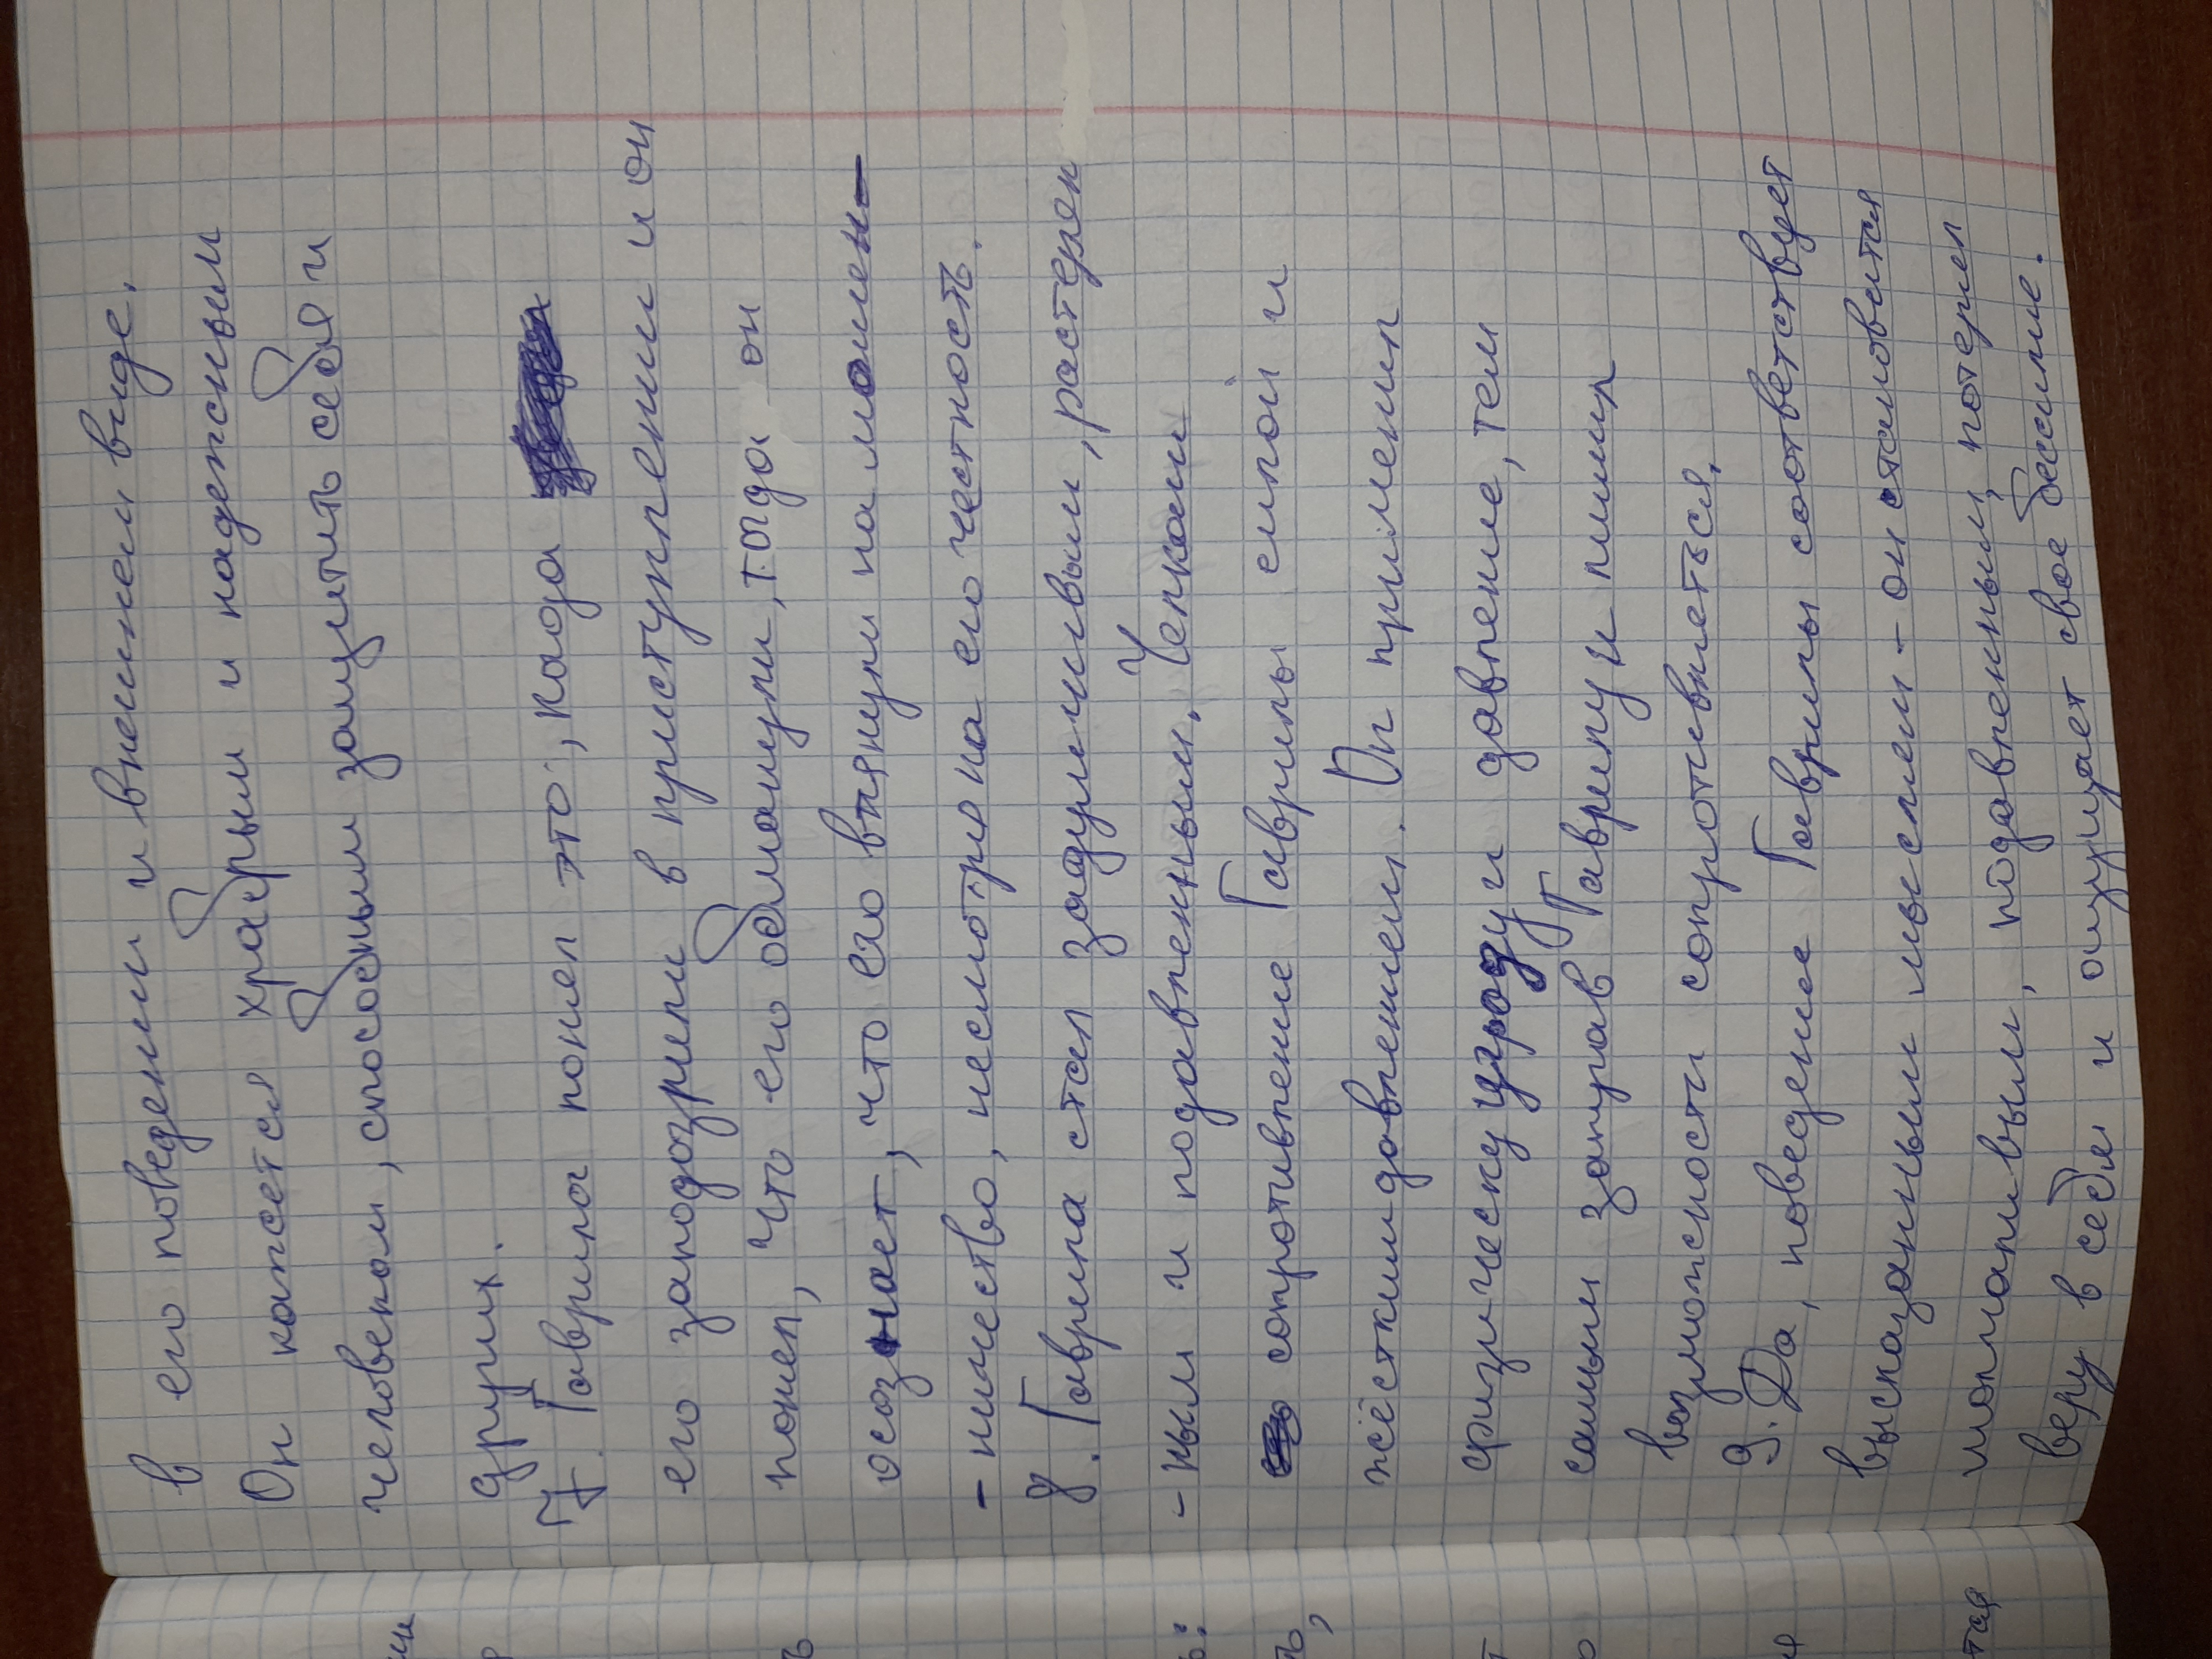 в его поведении и внешнем виде.
Он кажется храбрым и надежным
человеком, способным защитить себя и
других.
7. Гаврила понял это, когда
его заподозрили в приступлении и он
понял, что его обманули, тогда он
осознает, что его втянули на мошен-
-ничество, несмотря на его честность.
8. Гаврила стал задумчивым, растерян
-ным и подавленным. Челкаш
сопротивление Гаврилы силой и
жёстким давлением. Он применил
физическу угрозу и давление, тем
самым запугав Гаврилу и лишил
возможности сопротивляться.
9. Да, поведение Гаврилы соответствует
высказанным мыслям - он становится
молчаливым, подавленным, потерял
веру в себя и ощущает свое бессилие.
ь:
ь,
т
о
я
тая